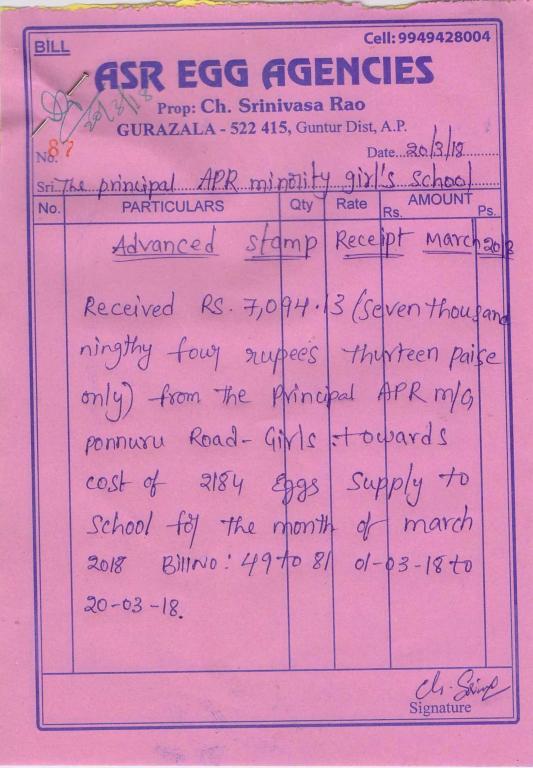 BILL
Cell: 9949428004
ASR EGG AGENCIES
Prop: Ch. Srinivasa Rao
20/3/18
GURAZALA - 522 415, Guntur Dist, A.P.
No. 87
Date...20/3/18
Sri. The principal APR minority girl's school
No. PARTICULARS Qty Rate AMOUNT
Rs. Ps.
Advanced stamp Receipt March 2018
Received RS. 7,094.13 (seven thousand
ningthy four rupees thurteen paise
only) from the Principal APR m/G
ponnuru Road- Girls towards
cost of 2184 Eggs supply to
school for the month of march
2018 Bill No: 49 to 81 01-03-18 to
20-03-18.
Signature